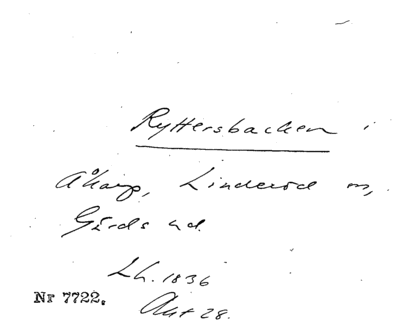 Ryttersbacken i
Åkarp, Linderöd sn,
Gärds hd.
Lh. 1836
Akt 28.
Nr 7722.